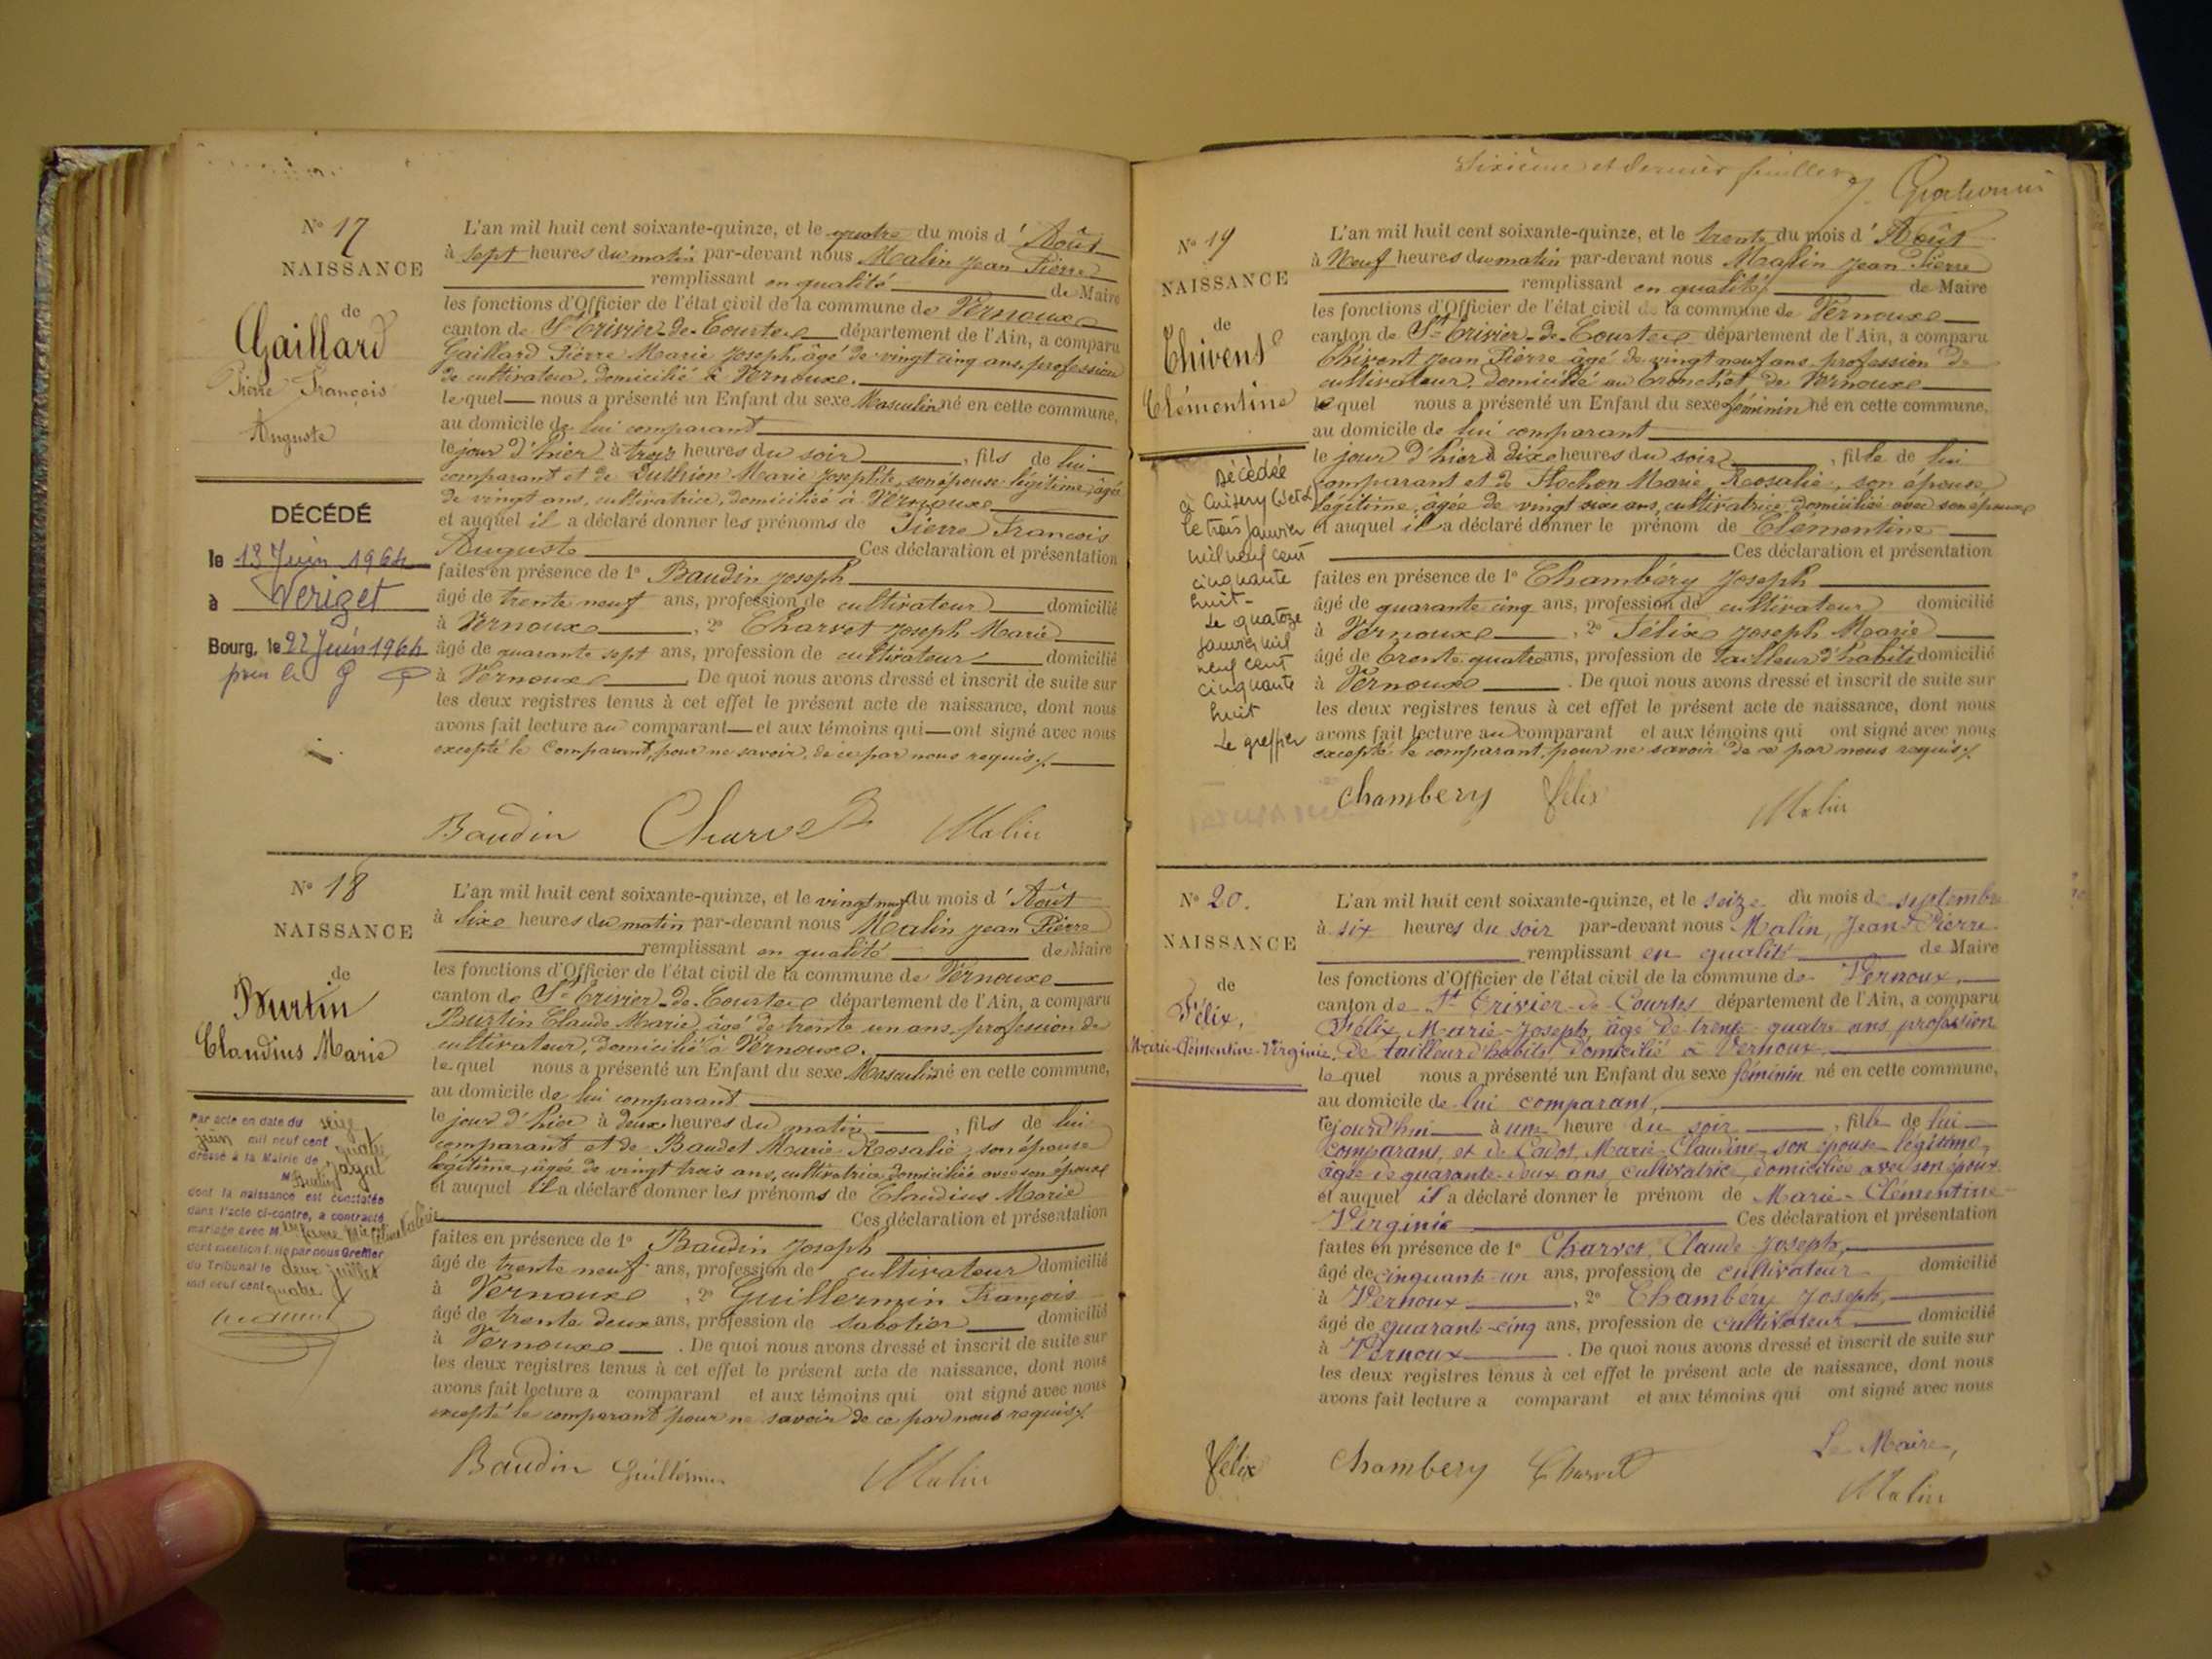 N° 17
NAISSANCE
de
Gaillard
Pierre François
Auguste
DÉCÉDÉ
le 13 Juin 1964
à Verizet
Bourg, le 22 Juin 1964
pour le
L'an mil huit cent soixante-quinze, et le quatre du mois d'Août
à sept heures du matin par-devant nous Malin Jean Pierre
remplissant en qualité de Maire
les fonctions d'Officier de l'état civil de la commune de Vernoux
canton de St Trivier-de-Courtes département de l'Ain, a comparu
Gaillard Pierre Marie Joseph, âgé de vingt cinq ans, profession
de cultivateur, domicilié à Vernoux.
lequel nous a présenté un Enfant du sexe Masculin né en cette commune,
au domicile de lui comparant
le jour d'hier à trois heures du soir, fils de lui
comparant et de Marie Josephte, son épouse légitime, âgée
de vingt ans, cultivatrice, domiciliée à Vernoux
et auquel il a déclaré donner les prénoms de Pierre François
Auguste Ces déclaration et présentation
faites en présence de 1° Baudin Joseph
âgé de trente neuf ans, profession de cultivateur domicilié
à Vernoux, 2° Charvet Joseph Marie
âgé de quarante sept ans, profession de cultivateur domicilié
à Vernoux De quoi nous avons dressé et inscrit de suite sur
les deux registres tenus à cet effet le présent acte de naissance, dont nous
avons fait lecture au comparant et aux témoins qui ont signé avec nous
excepté le comparant, pour ne savoir, de ce par nous requis.
Baudin Charvet Malin
N° 18
NAISSANCE
de
Burtin
Claudius Marie
Par acte en date du seize
juin mil neuf cent quatre
dressé à la Mairie de Jayat
M Burtin
dont la naissance est constatée
dans l'acte ci-contre, a contracté
mariage avec M
dont mention faite par nous Greffier
du Tribunal le deux juillet
mil neuf cent quatre
L'an mil huit cent soixante-quinze, et le vingt neuf du mois d'Août
à Six heures du matin par-devant nous Malin Jean Pierre
remplissant en qualité de Maire
les fonctions d'Officier de l'état civil de la commune de Vernoux
canton de St Trivier-de-Courtes département de l'Ain, a comparu
Burtin Claude Marie, âgé de trente un ans, profession de
cultivateur, domicilié à Vernoux.
lequel nous a présenté un Enfant du sexe Masculin né en cette commune,
au domicile de lui comparant
le jour d'hier à deux heures du matin, fils de lui
comparant et de Baudet Marie Rosalie, son épouse
légitime, âgée de vingt trois ans, cultivatrice domiciliée avec son époux
et auquel il a déclaré donner les prénoms de Claudius Marie
Ces déclaration et présentation
faites en présence de 1° Baudin Joseph
âgé de trente neuf ans, profession de cultivateur domicilié
à Vernoux, 2° Guillermin François
âgé de trente deux ans, profession de sabotier domicilié
à Vernoux. De quoi nous avons dressé et inscrit de suite sur
les deux registres tenus à cet effet le présent acte de naissance, dont nous
avons fait lecture a comparant et aux témoins qui ont signé avec nous
excepté le comparant pour ne savoir de ce par nous requis.
Baudin Guillermin Malin
Sixième et dernier feuillet
N° 19
NAISSANCE
de
Thivent
Clémentine
Décédée
à Cuisery
le trois janvier
mil neuf cent
cinquante
huit-
Le quatorze
janvier mil
neuf cent
cinquante
huit
Le greffier
L'an mil huit cent soixante-quinze, et le trente du mois d'Août
à Neuf heures du matin par-devant nous Malin Jean Pierre
remplissant en qualité de Maire
les fonctions d'Officier de l'état civil de la commune de Vernoux
canton de St Trivier-de-Courtes département de l'Ain, a comparu
Thivent Jean Pierre âgé de vingt neuf ans, profession de
cultivateur, domicilié au Tronchet de Vernoux
lequel nous a présenté un Enfant du sexe féminin né en cette commune,
au domicile de lui comparant
le jour d'hier à dix heures du soir, fille de lui
comparant et de Flochon Marie Rosalie, son épouse
légitime, âgée de vingt six ans, cultivatrice, domiciliée avec son époux
et auquel il a déclaré donner le prénom de Clementine
Ces déclaration et présentation
faites en présence de 1° Chambéry Joseph
âgé de quarante cinq ans, profession de cultivateur domicilié
à Vernoux, 2° Félix Joseph Marie
âgé de trente quatre ans, profession de tailleur d'habits domicilié
à Vernoux. De quoi nous avons dressé et inscrit de suite sur
les deux registres tenus à cet effet le présent acte de naissance, dont nous
avons fait lecture au comparant et aux témoins qui ont signé avec nous
excepté le comparant, pour ne savoir de ce par nous requis.
Chambery félix Malin
N° 20.
NAISSANCE
de
Félix,
Marie-Clémentine-Virginie.
L'an mil huit cent soixante-quinze, et le seize du mois de septembre
à six heures du soir par-devant nous Malin, Jean-Pierre
remplissant en qualité de Maire
les fonctions d'Officier de l'état civil de la commune de Vernoux,
canton de St Trivier-de-Courtes département de l'Ain, a comparu
Félix, Marie-Joseph, âgé de trente-quatre ans, profession
de tailleur d'habits, domicilié à Vernoux,
lequel nous a présenté un Enfant du sexe féminin né en cette commune,
au domicile de lui comparant,
cejourd'hui à une heure du soir, fille de lui
comparant, et de Cadot, Marie-Claudine son épouse légitime,
âgée de quarante-deux ans, cultivatrice, domiciliée avec son époux
et auquel il a déclaré donner le prénom de Marie-Clémentine-
Virginie Ces déclaration et présentation
faites en présence de 1° Charvet, Claude-Joseph,
âgé de cinquante-un ans, profession de cultivateur domicilié
à Vernoux, 2° Chambéry Joseph,
âgé de quarante-cinq ans, profession de cultivateur domicilié
à Vernoux. De quoi nous avons dressé et inscrit de suite sur
les deux registres tenus à cet effet le présent acte de naissance, dont nous
avons fait lecture a comparant et aux témoins qui ont signé avec nous
Le Maire,
félix Chambery Charvet Malin